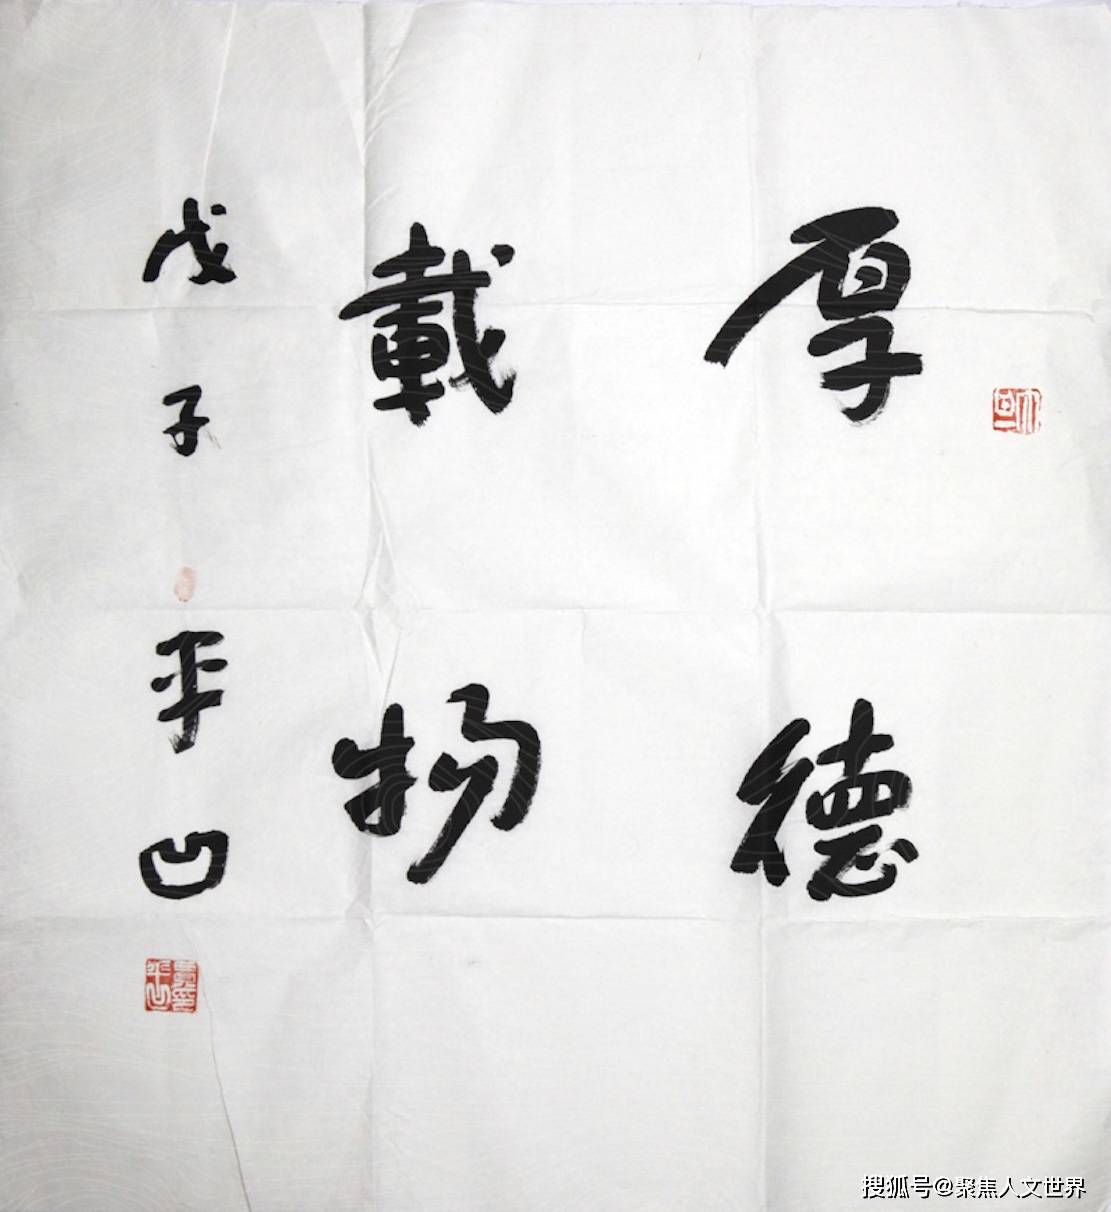 厚德
載物
戊子 平凹
搜狐号@聚焦人文世界